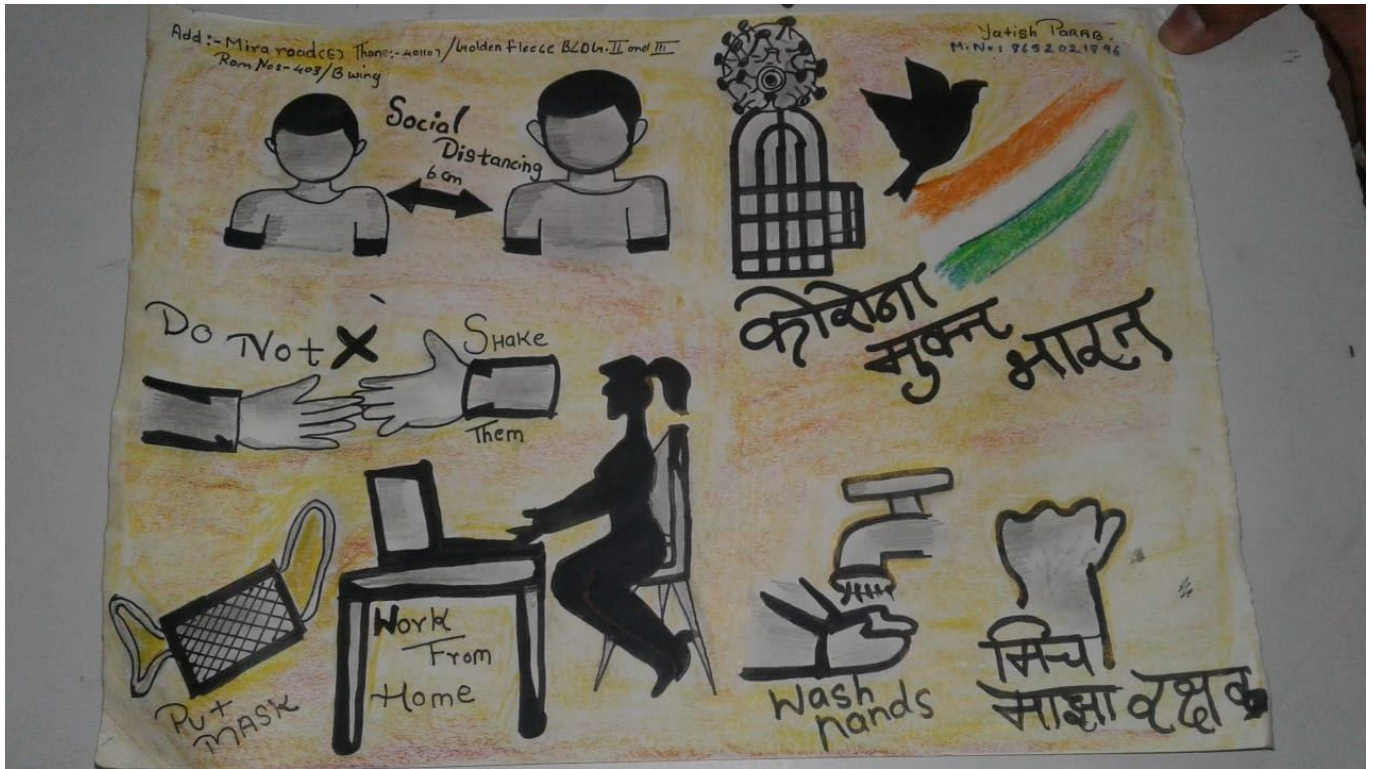 Add:- Mira road(E) Thane:-401107/Golden fleece BLDG. II and III
Rom Nos-403/B wing
Yatish PARAB.
M.No: 8652021896
Social
Distancing
6 cm
कोरोना
मुक्त
भारत
Do Not X
SHAKE
Them
Put
MASK
Work
From
Home
Wash
hands
मिच
माझा रक्षक